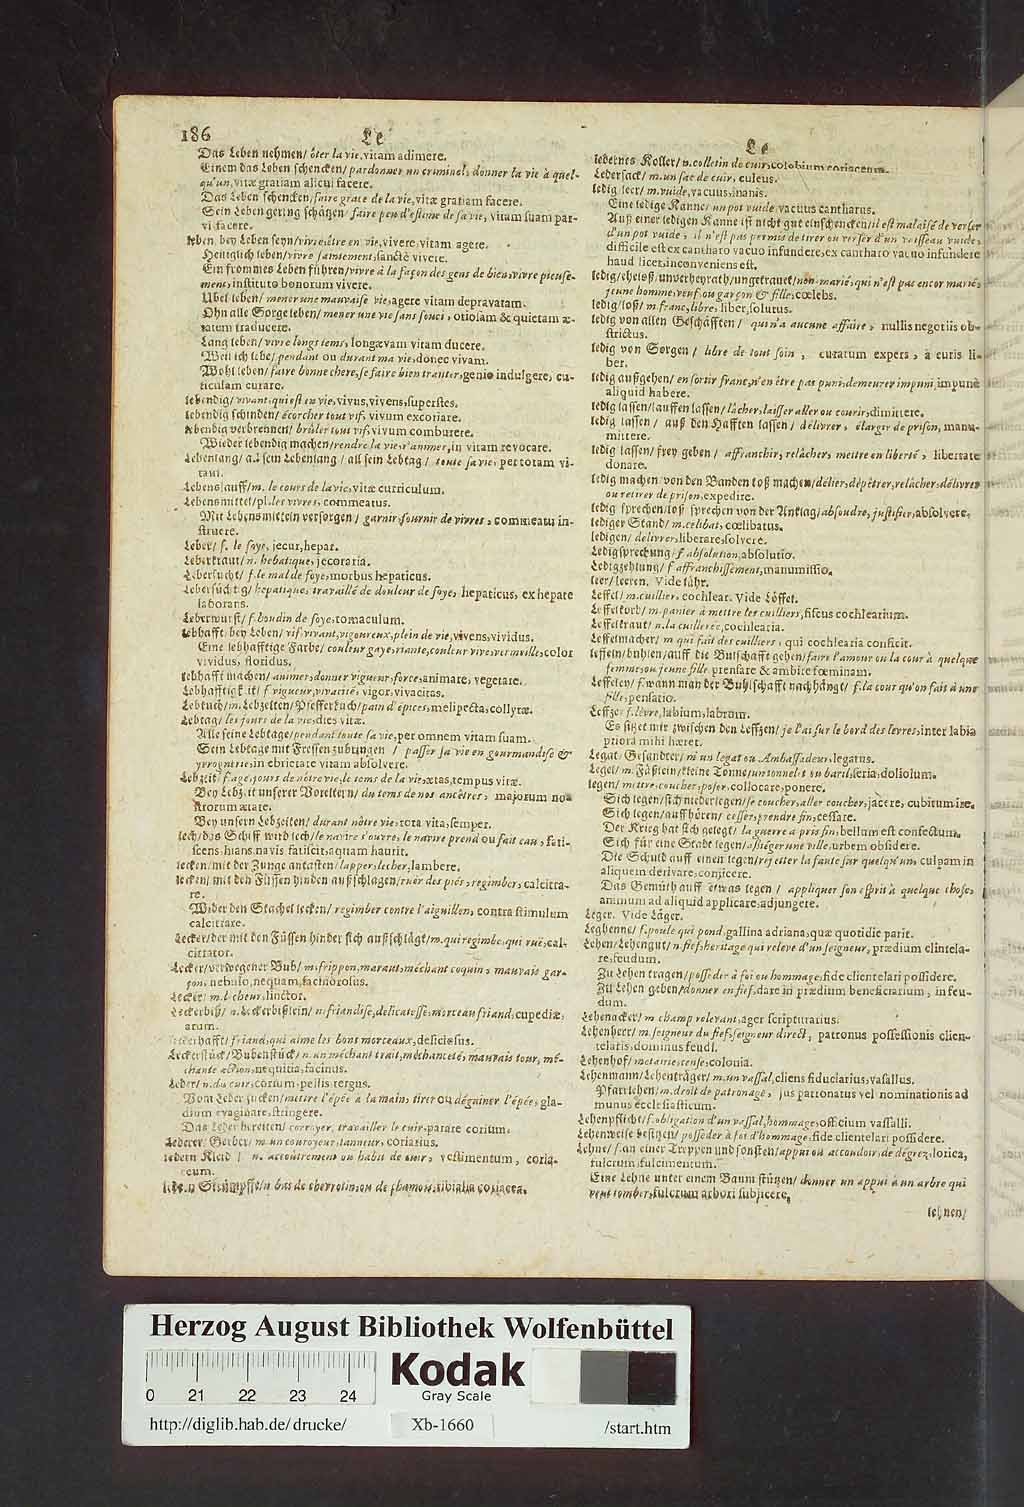 186
Le
Das Leben nehmen/ ôter la vie, vitam adimere.
Einem das Leben schencken/ pardonner un criminel, donner la vie à quel-
qu'un, vitæ gratiam alicui facere.
Das Leben schencken/ faire grace de la vie, vitæ gratiam facere.
Sein Leben gering schätzen/ faire peu d'estime de sa vie, vitam suam par-
vi facere.
leben, bey Leben seyn/ vivre, être en vie, vivere, vitam agere.
Heiliglich leben/ vivre saintement, sanctè vivere.
Ein frommes Leben führen/ vivre à la façon des gens de bien, vivre pieuse-
mens, instituto bonorum vivere.
Übel leben/ mener une mauvaise vie, agere vitam depravatam.
Ohn alle Sorge leben/ mener une vie sans souci, otiosam & quietam æ-
tatem traducere.
Lang leben/ vivre longs tems, longævam vitam ducere.
Weil ich lebe/ pendant ou durant ma vie, donec vivam.
Wohl leben/ faire bonne chere, se faire bien traiter, genio indulgere, cu-
ticulam curare.
lebendig/ vivant, qui est en vie, vivus, vivens, superstes.
lebendig schinden/ écorcher tout vif, vivum excoriare.
lebendig verbrennen/ brûler tout vif, vivum comburere.
Wieder lebendig machen/ rendre la vie, r'animer, in vitam revocare.
Lebenlang/ all sein Lebenlang/ all sein Lebtag/ toute sa vie, per totam vi-
tam.
Lebenslauff/ m. le cours de la vie, vitæ curriculum.
Lebensmittel/ pl. les vivres, commeatus.
Mit Lebensmitteln versorgen/ garnir, fournir de vivres, commeatu in-
struere.
Leber/ f. le foye, jecur, hepar.
Leberkraut/ n. hebatique, jecoraria.
Lebersucht/ f. le mal de foye, morbus hepaticus.
Lebersüchtig/ hepatique, travaillé de douleur de foye, hepaticus, ex hepate
laborans.
Leberwurst/ f. boudin de foye, tomaculum.
lebhafft, bey Leben/ vif, vivant, vigoureux, plein de vie, vivens, vividus.
Eine lebhafftige Farbe/ couleur gaye, riante, couleur vive, vermeille, color
vividus, floridus.
lebhafft machen/ animer, donner vigueur, force, animare, vegetare.
Lebhafftigkeit/ f. vigueur, vivacité, vigor, vivacitas.
Lebkuch/ m. Lebzelten/ Pfefferkuch/ pain d'épices, melipecta, collyræ.
Lebtag/ les jours de la vie, dies vitæ.
Alle seine Lebtage/ pendant toute sa vie, per omnem vitam suam.
Sein Lebtage mit Fressen zubringen/ passer sa vie en gourmandise &
yvrognerie, in ebrietate vitam absolvere.
Lebzeit/ f. age, jours de nôtre vie, le tems de la vie, ætas, tempus vitæ.
Bey Lebzeit unserer Voreltern/ du tems de nos ancêtres, majorum no-
strorum ætate.
Bey unsern Lebzeiten/ durant nôtre vie, tota vita, semper.
lech/ das Schiff wird lech/ le navire s'ouvre, le navire prend ou fait eau, fati-
scens, hians, navis fatiscit, aquam haurit.
lecken/ mit der Zunge antasten/ lapper, lecher, lambere.
lecken/ mit den Füssen hinden außschlagen/ ruër des piés, regimber, calcitra-
re.
Wider den Stachel lecken/ regimber contre l'aiguillon, contra stimulum
calcitrare.
Lecker/ der mit den Füssen hinder sich außschlägt/ m. qui regimbe, qui ruë, cal-
citrator.
Lecker/ verwegener Bub/ m. frippon, maraut, méchant coquin, mauvais gar-
çon, nebulo, nequam, facinorosus.
Lecker/ m. lecheur, linctor.
Leckerbiß/ n. Leckerbißlein/ n. friandise, delicatesse, morceau friand, cupediæ,
arum.
leckerhafft/ friand, qui aime les bons morceaux, deliciosus.
Leckerstück/ Bubenstück/ n. un méchant trait, méchanceté, mauvais tour, mé-
chante action, nequitia, facinus.
Leder/ n. du cuir, corium, pellis, tergus.
Vom Leder zucken/ mettre l'épée à la main, tirer ou dégainer l'épée, gla-
dium evaginare, stringere.
Das Leder bereiten/ corroyer, travailler le cuir, parare corium.
Lederer/ Gerber/ m. un couroyeur, tanneur, coriarius.
ledern Kleid/ n. accoûtrement ou habit de cuir, vestimentum, coria-
ceum.
ledern Strümpffe/ n. bas de chevrotin, ou de chamois, tibialia coriacea.
Le
ledernes Koller/ n. colletin de cuir, colobium coriaceum.
Ledersack/ m. un sac de cuir, culeus.
ledig/ leer/ m. vuide, vacuus, inanis.
Eine ledige Kanne/ un pot vuide, vacuus cantharus.
Auß einer ledigen Kanne ist nicht gut einschencken/ il est malaisé de verser
d'un pot vuide, il n'est pas permis de tirer ou verser d'un vaisseau vuide,
difficile est ex cantharo vacuo infundere, ex cantharo vacuo infundere
haud licet, inconveniens est.
ledig/ eheloß/ unverheyrath/ ungetrauet/ non-marié, qui n'est pas encor marié,
jeune homme, veuf, ou garçon & fille, cœlebs.
ledig/ loß/ m. franc, libre, liber, solutus.
ledig von allen Geschäfften/ qui n'a aucune affaire, nullis negotiis ob-
strictus.
ledig von Sorgen/ libre de tout soin, curarum expers, à curis li-
ber.
ledig außgehen/ en sortir franc, n'en être pas puni, demeurer impuni, impunè
aliquid habere.
ledig lassen/ lauffen lassen/ lâcher, laisser aller ou courir, dimittere.
ledig lassen/ auß den Hafften lassen/ délivrer, élargir de prison, manu-
mittere.
ledig lassen/ frey geben/ affranchir, relâcher, mettre en liberté, libertate
donare.
ledig machen von den Banden loß machen/ délier, dépêtrer, relâcher, délivrer
ou retirer de prison, expedire.
ledig sprechen/ loß sprechen von der Anklag/ absoudre, justifier, absolvere.
lediger Stand/ m. celibat, cœlibatus.
ledigen/ delivrer, liberare, solvere.
Ledigsprechung/ f. absolution, absolutio.
Ledigzehlung/ f. affranchissement, manumissio.
leer/ leeren. Vide lähr.
Leffel/ m. cuillier, cochlear. Vide Löffel.
Leffelkorb/ m. panier à mettre les cuilliers, fiscus cochlearium.
Leffelkraut/ n. la cuillerée, cochlearia.
Leffelmacher/ m. qui fait des cuilliers, qui cochlearia conficit.
leffeln/ buhlen/ auff die Bulschafft gehen/ faire l'amour ou la cour à quelque
femme, ou jeune fille, prensare & ambire fœminam.
Leffeley/ f. wann man der Buhlschafft nachhängt/ f. la cour qu'on fait à une
fille, pensatio.
Leffze/ f. lèvre, labium, labrum.
Es sitzet mir zwischen den Leffzen/ je l'ai sur le bord des levres, inter labia
priora mihi hæret.
Legat/ Gesandter/ m. un legat ou Ambassadeur, legatus.
Legel/ m. Fäßlein/ kleine Tonne/ un tonnelet ou baril, seria, doliolum.
legen/ mettre, coucher, poser, collocare, ponere.
Sich legen/ sich nieder legen/ se coucher, aller coucher, jacere, cubitum ire.
Sich legen/ auffhören/ cesser, prendre fin, cessare.
Der Krieg hat sich gelegt/ la guerre a pris fin, bellum est confectum.
Sich für eine Stadt legen/ assiéger une ville, urbem obsidere.
Die Schuld auff einen legen/ rejetter la faute sur quelqu'un, culpam in
aliquem derivare, conjicere.
Das Gemüth auff etwas legen/ appliquer son esprit à quelque chose,
animum ad aliquid applicare, adjungere.
Leger. Vide Läger.
Leghenne/ f. poule qui pond, gallina adriana, quæ quotidie parit.
Lehen/ Lehengut/ n. fief, heritage qui releve d'un seigneur, prædium clientela-
re, feudum.
Zu Lehen tragen/ posseder à foi ou hommage, fide clientelari possidere.
Zu Lehen geben/ donner en fief, dare in prædium beneficiarium, in feu-
dum.
Lehenacker/ m. champ relevant, ager scripturarius.
Lehenherr/ m. seigneur du fief, seigneur direct, patronus possessionis clien-
telaris, dominus feudi.
Lehenhof/ metairie, cense, colonia.
Lehenmann/ Lehenträger/ m. un vassal, cliens fiduciarius, vasallus.
Pfarrlehen/ m. droit de patronage, jus patronatus vel nominationis ad
munus ecclesiasticum.
Lehenpflicht/ f. obligation d'un vassal, hommage, officium vassalli.
Lehenweise besitzen/ posséder à foi d'hommage, fide clientelari possidere.
Lehne/ f. an einer Treppen und sonsten/ appui ou accoudoir, de dégrez, lorica,
fulcrum, fulcimentum.
Eine Lehne unter einem Baum stützen/ donner un appui à un arbre qui
veut tomber, fulcrum arbori subjicere.
lehnen/
Herzog August Bibliothek Wolfenbüttel
Kodak
Gray Scale
0 21 22 23 24
http://diglib.hab.de/drucke/
Xb-1660
/start.htm